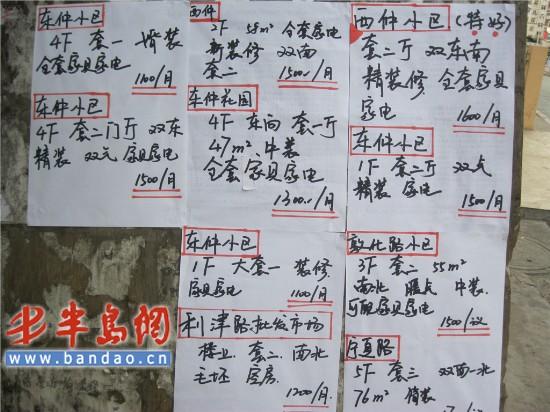 东仲小区
4F 套一 精装
全套家具家电
1100/月
东仲小区
4F 套二门厅 双东
精装 双气 家具家电
1500/月
西仲
2F 58m² 全套家电
新装修 双南
套二 1500/月
东仲花园
4F 东向 套一厅
47m² 中装
全套家具家电
1300/月
西仲小区(特好)
套二厅 双东南
精装修 全套家具
家电 1600/月
东仲小区
1F 套二厅 双气
精装 家电
1500/月
东仲小区
1F 大套一 装修
家具家电
1100/月
利津路批发市场
楼上 套二 南北
毛坯 库房
1200/月
敦化路小区
3F 套二 55m²
南北 暖气 中装
可配家具家电
1500/议
宁夏路
5F 套三 双南一北
76m² 简装
半岛網
www.bandao.cn